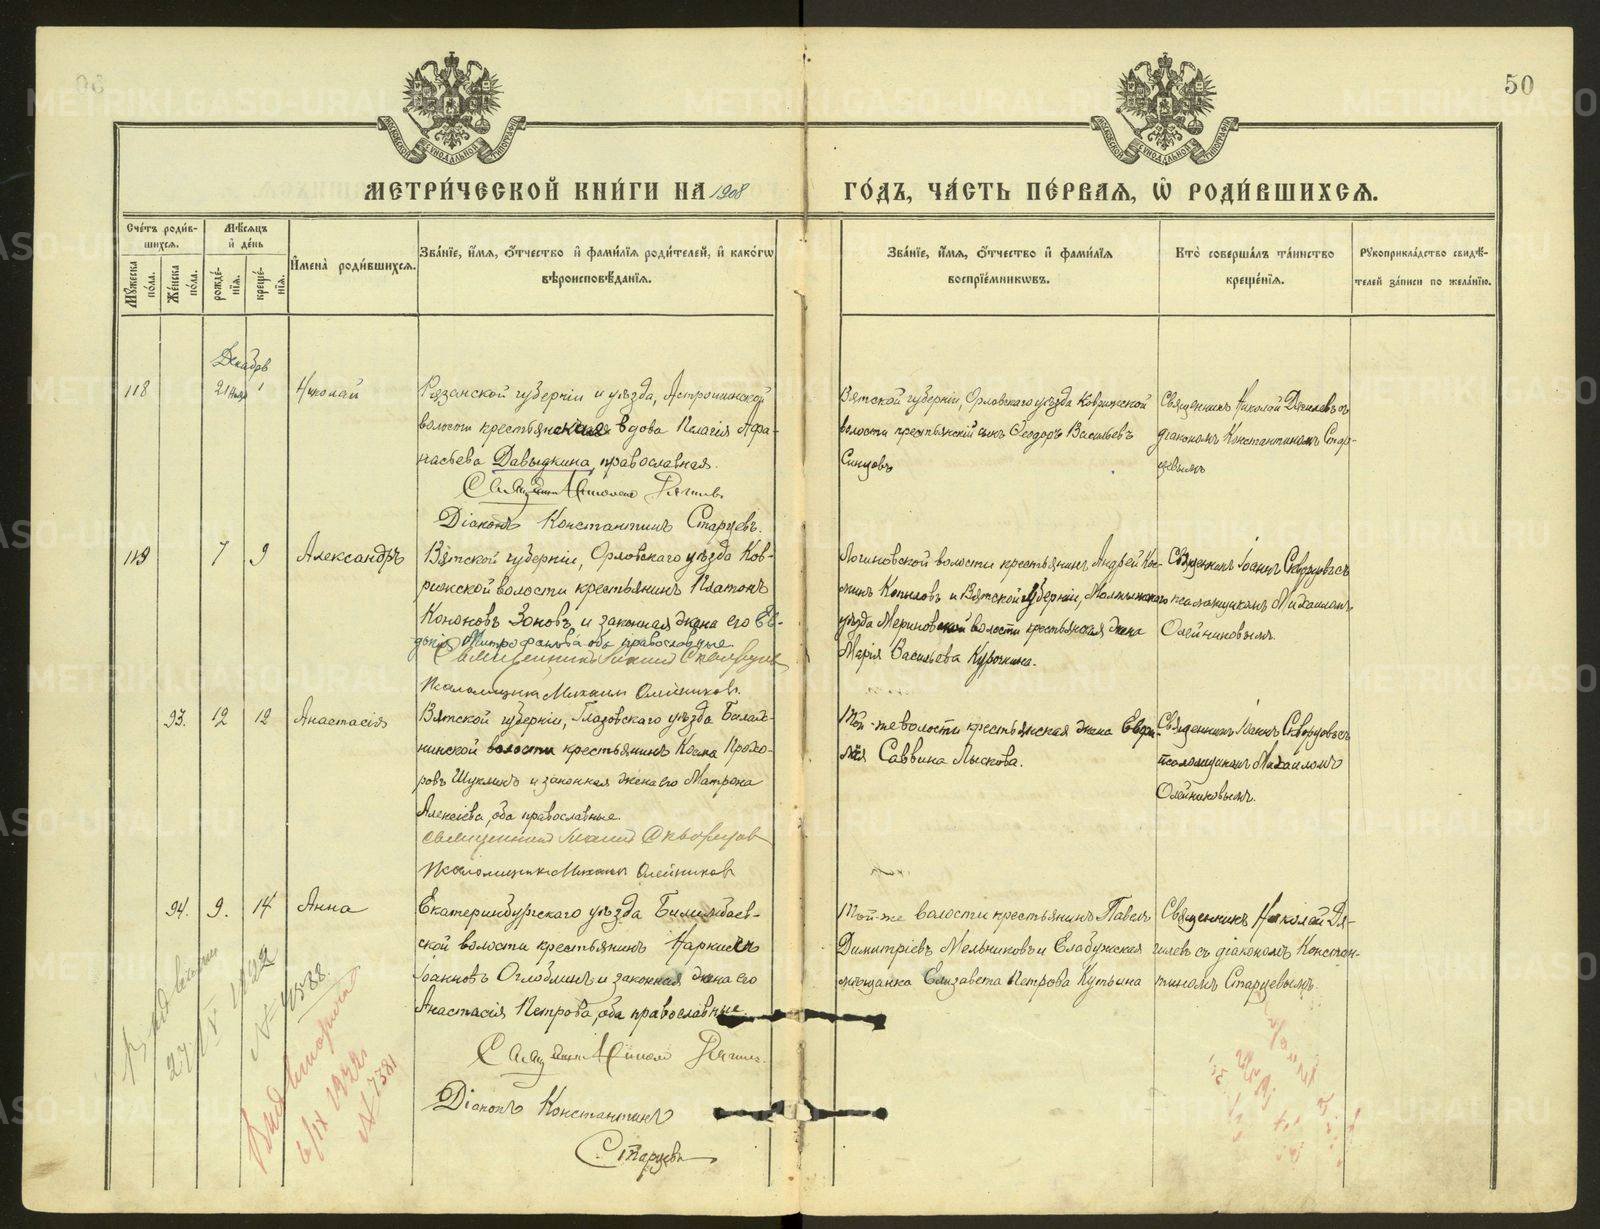 50
МЕТРИ́ЧЕСКОЙ КНИ́ГИ НА 1908 ГО́ДЪ, ЧА́СТЬ ПЕ́РВАЯ, Ѿ РОДИ́ВШИХСЯ.
Сче́тъ роди́в-
шихся.
Мѣ́сяцъ
и де́нь
Му́жеска
по́ла.
Же́нска
по́ла.
рожде́-
нія.
креще́-
нія.
Имена̀ роди́вшихся.
Зва́ніе, и́мя, о́тчество и фами́лія роди́телей, и како́гѡ
вѣроисповѣ́данія.
Зва́ніе, и́мя, о́тчество и фами́лія
воспріе́мникѡвъ.
Кто̀ соверша́лъ та́инство
креще́нія.
Рукоприкла́дство свидѣ́-
телей за́писи по жела́нію.
Декабрь
118 21 Нояб 1 Николай
Рязанской губерніи и уѣзда,
волости крестьянская вдова Пелагія Афа-
насьева Давыдкина, православная.
Священникъ Николай
Діаконъ Константинъ Старцевъ.
Вятской губерніи, Орловскаго уѣзда
волости крестьянскій сынъ Ѳеодоръ Васильевъ
Синцовъ
Священникъ Николай съ
діакономъ Константиномъ Стар-
цевымъ
119 7 9 Александръ
Вятской губерніи, Орловскаго уѣзда Ков-
рижской волости крестьянинъ Платонъ
Кононовъ Зоновъ и законная жена его Ев-
докія Митрофанова оба православные.
Священникъ Іоаннъ Скворцовъ
Псаломщикъ Михаилъ Олейниковъ.
Логиновской волости крестьянинъ Андрей Кос-
минъ Копыловъ и Вятской губерніи, Малмыжскаго
уѣзда Мериновской волости крестьянская жена
Марія Васильева Курочкина.
Священникъ Іоаннъ Скворцовъ съ
псаломщикомъ Михаиломъ
Олейниковымъ.
93. 12 12 Анастасія
Вятской губерніи, Глазовскаго уѣзда Балах-
нинской волости крестьянинъ Косма Прохо-
ровъ Шуклинъ и законная жена его Матрона
Алексіева, оба православные.
Священникъ Іоаннъ Скворцовъ
Псаломщикъ Михаилъ Олейниковъ
Той-же волости крестьянская жена Евфи-
мія Саввина Лыскова.
Священникъ Іоаннъ Скворцовъ съ
псаломщикомъ Михаиломъ
Олейниковымъ.
94. 9. 14 Анна
Екатеринбургскаго уѣзда Билимбаев-
ской волости крестьянинъ Наркисъ
Іоанновъ Оглоблинъ и законная жена его
Анастасія Петрова, оба православные.
Священникъ Николай
Діаконъ Константинъ
Старцевъ
Той-же волости крестьянинъ Павелъ
Димитріевъ Мельниковъ и Елабужская
мѣщанка Елизавета Петрова Кутьина
Священникъ Николай Дя-
гилевъ съ діакономъ Констан-
тиномъ Старцевымъ.
27/IV 1922
№ 4588
6/IX 1922
№ 7381
METRIKI.GASO-URAL.RU